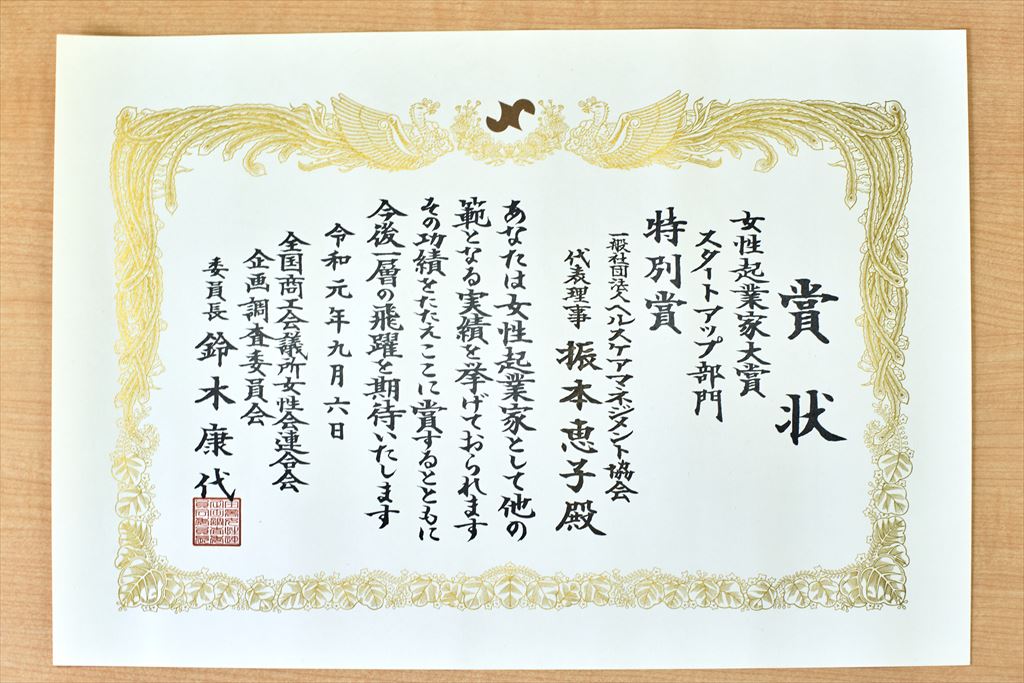 賞状
女性起業家大賞
スタートアップ部門
特別賞
一般社団法人ヘルスケアマネジメント協会
代表理事 振本恵子殿
あなたは女性起業家として他の
範となる実績を挙げておられます
その功績をたたえここに賞するとともに
今後一層の飛躍を期待いたします
令和元年九月六日
全国商工会議所女性会連合会
企画調査委員会
委員長 鈴木康代